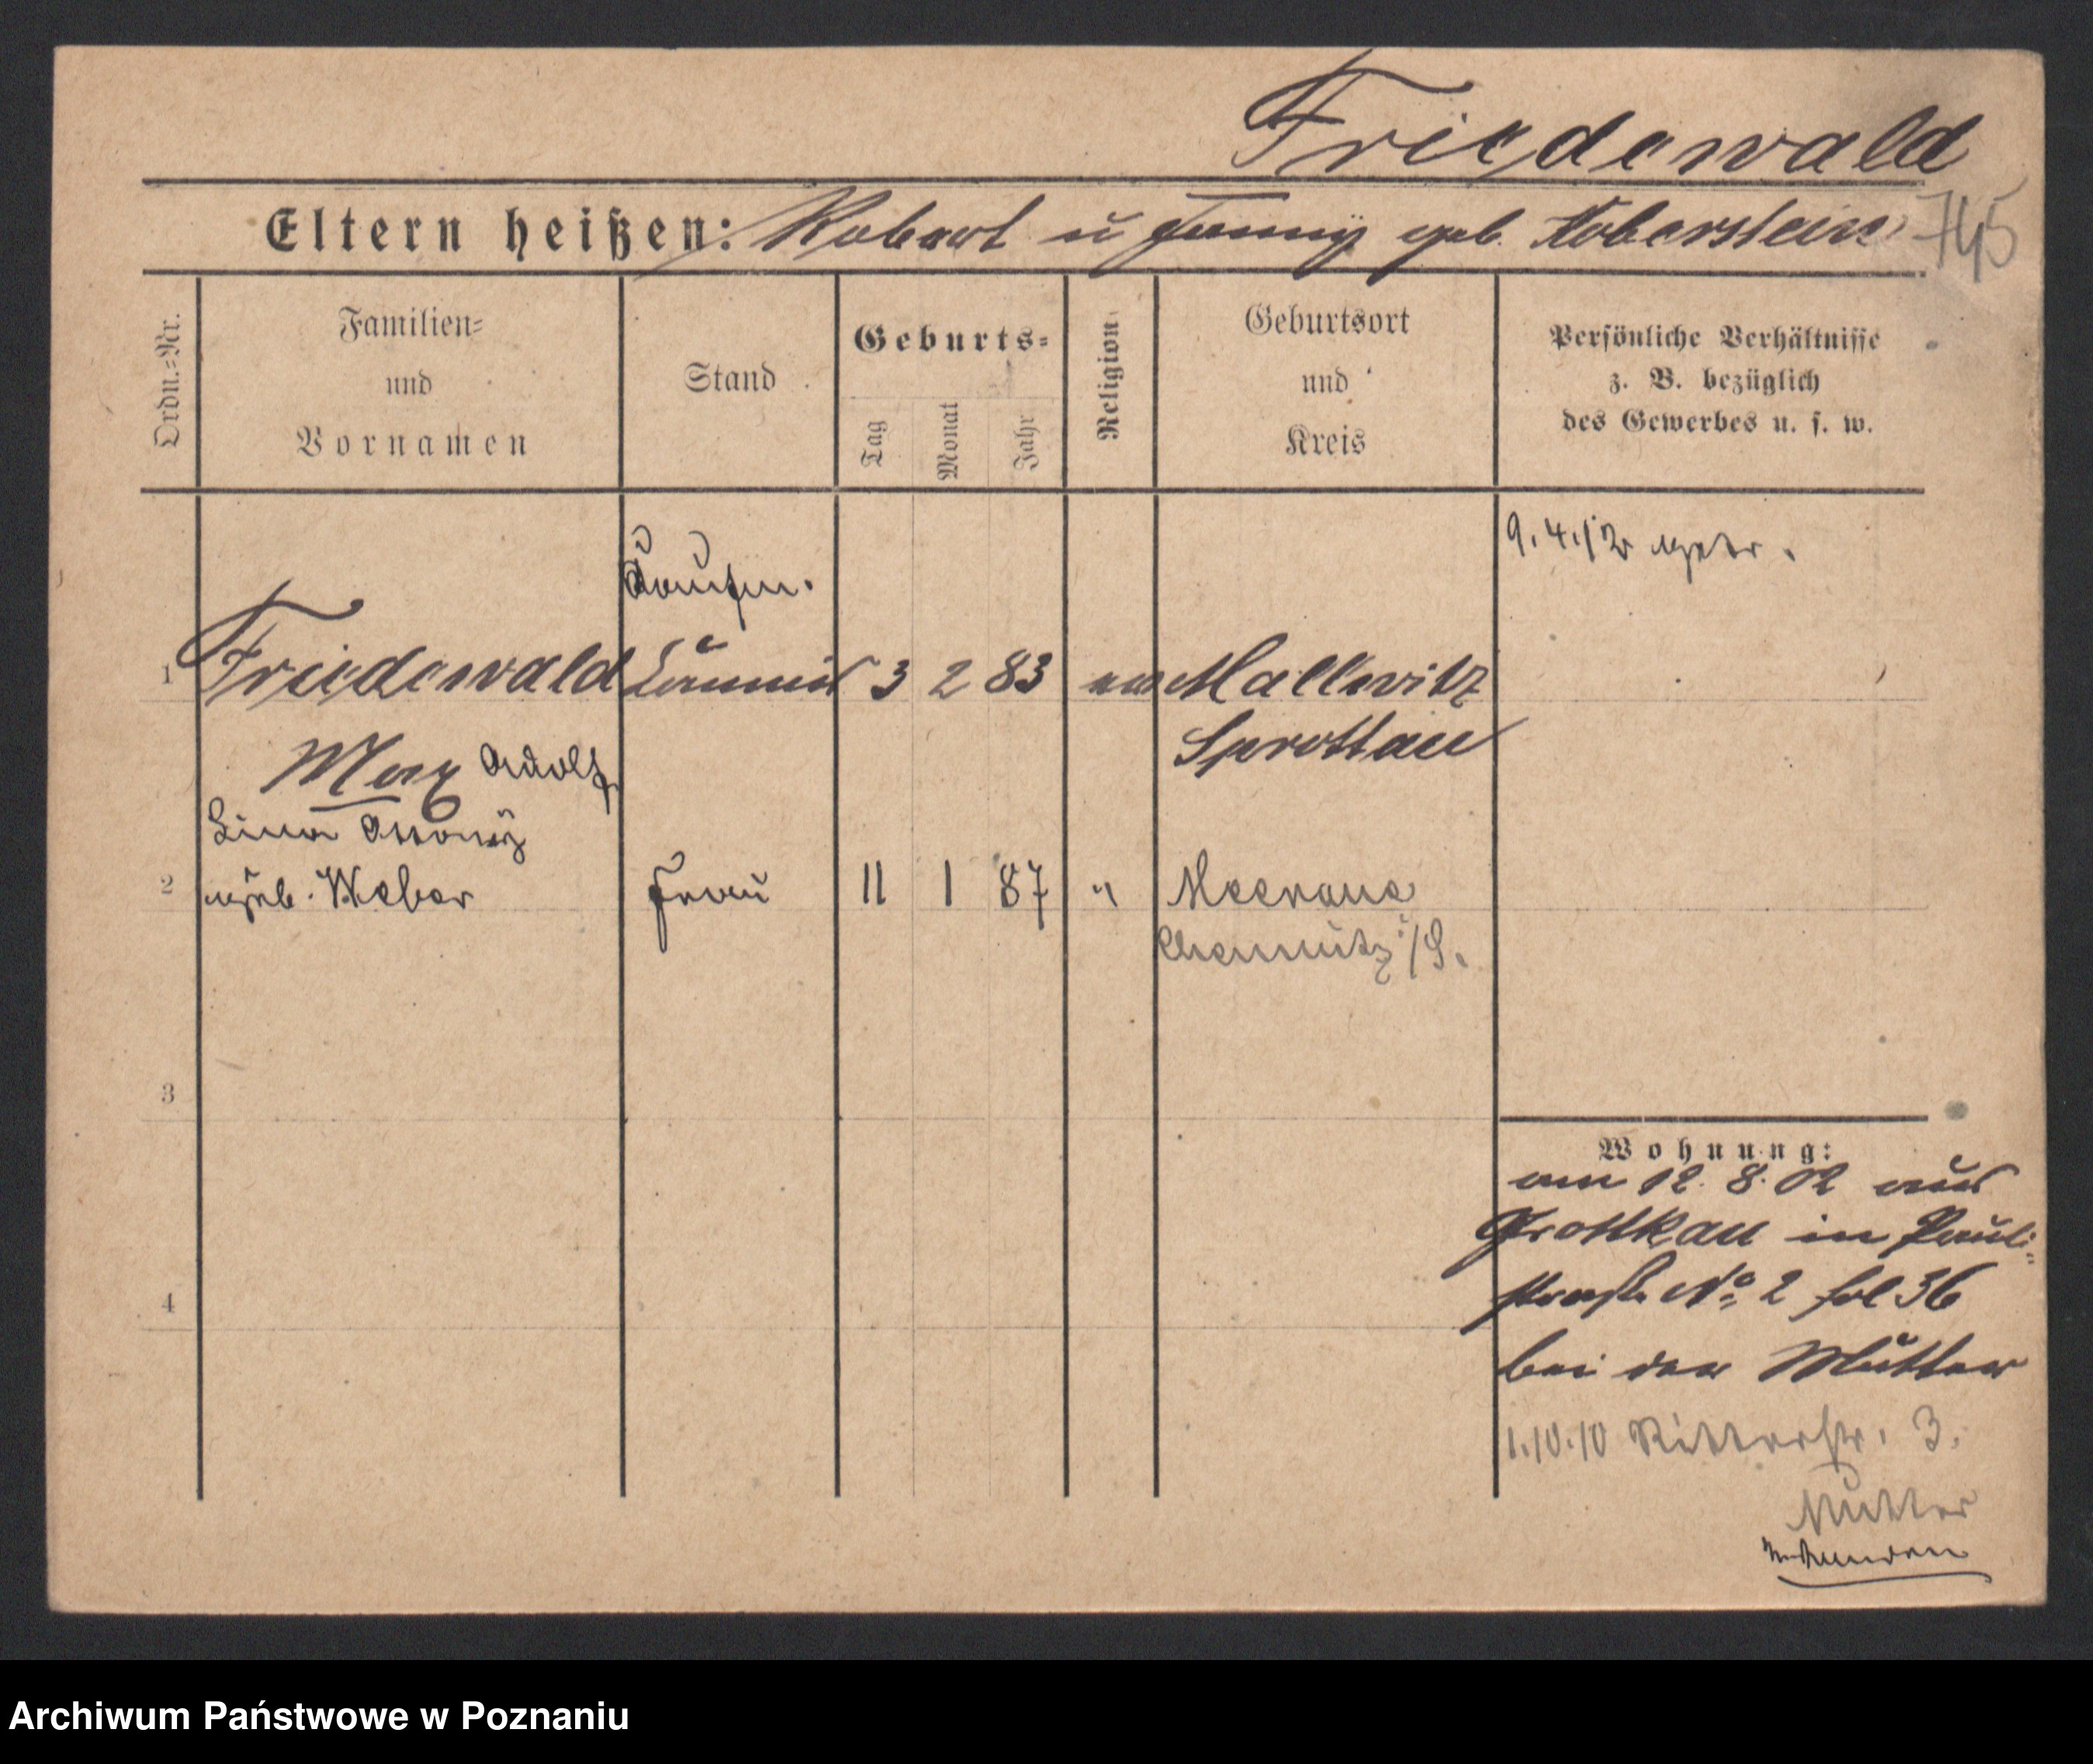 Friedewald
Eltern heißen: Robert u Fanny geb. Koberstein
745
Ordn.-Nr.
Familien- und Vornamen
Stand
Geburts-
Tag
Monat
Jahr
Religion
Geburtsort und Kreis
Persönliche Verhältnisse
z. B. bezüglich
des Gewerbes u. s. w.
9. 4. 12 getr.
Kaufm.
1 Friedewald 3 2 83 ev Mallwitz
Sprottau
Max Adolf
Lina
2 geb. Weber Frau 11 1 87 " Meerane
Chemnitz i/S.
3
4
Wohnung:
am 12. 8. 02 aus
Grottkau in Pauli-
straße No 2 fol 36
bei der Mutter
1.10.10 Ritterstr. 3.
Mutter